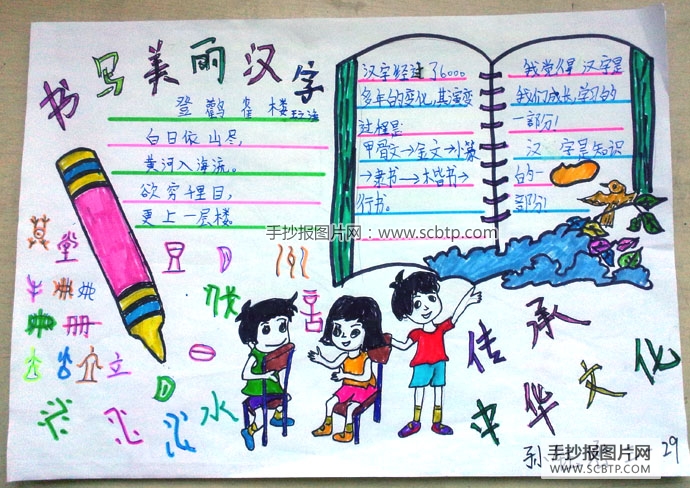 书写美丽汉字
登鹳雀楼
白日依山尽,
黄河入海流。
欲穷千里目,
更上一层楼。
汉字经过了6000
多年的变化,其演变
过程是:
甲骨文→金文→小篆
→隶书→楷书→
行书。
我觉得汉字是
我们成长,学习的
一部分!
汉字是知识
的一
部分!
手抄报图片网:www.scbtp.com
册
立
水
传承
中华文化
孙
29
手抄报图片网
WWW.SCBTP.COM